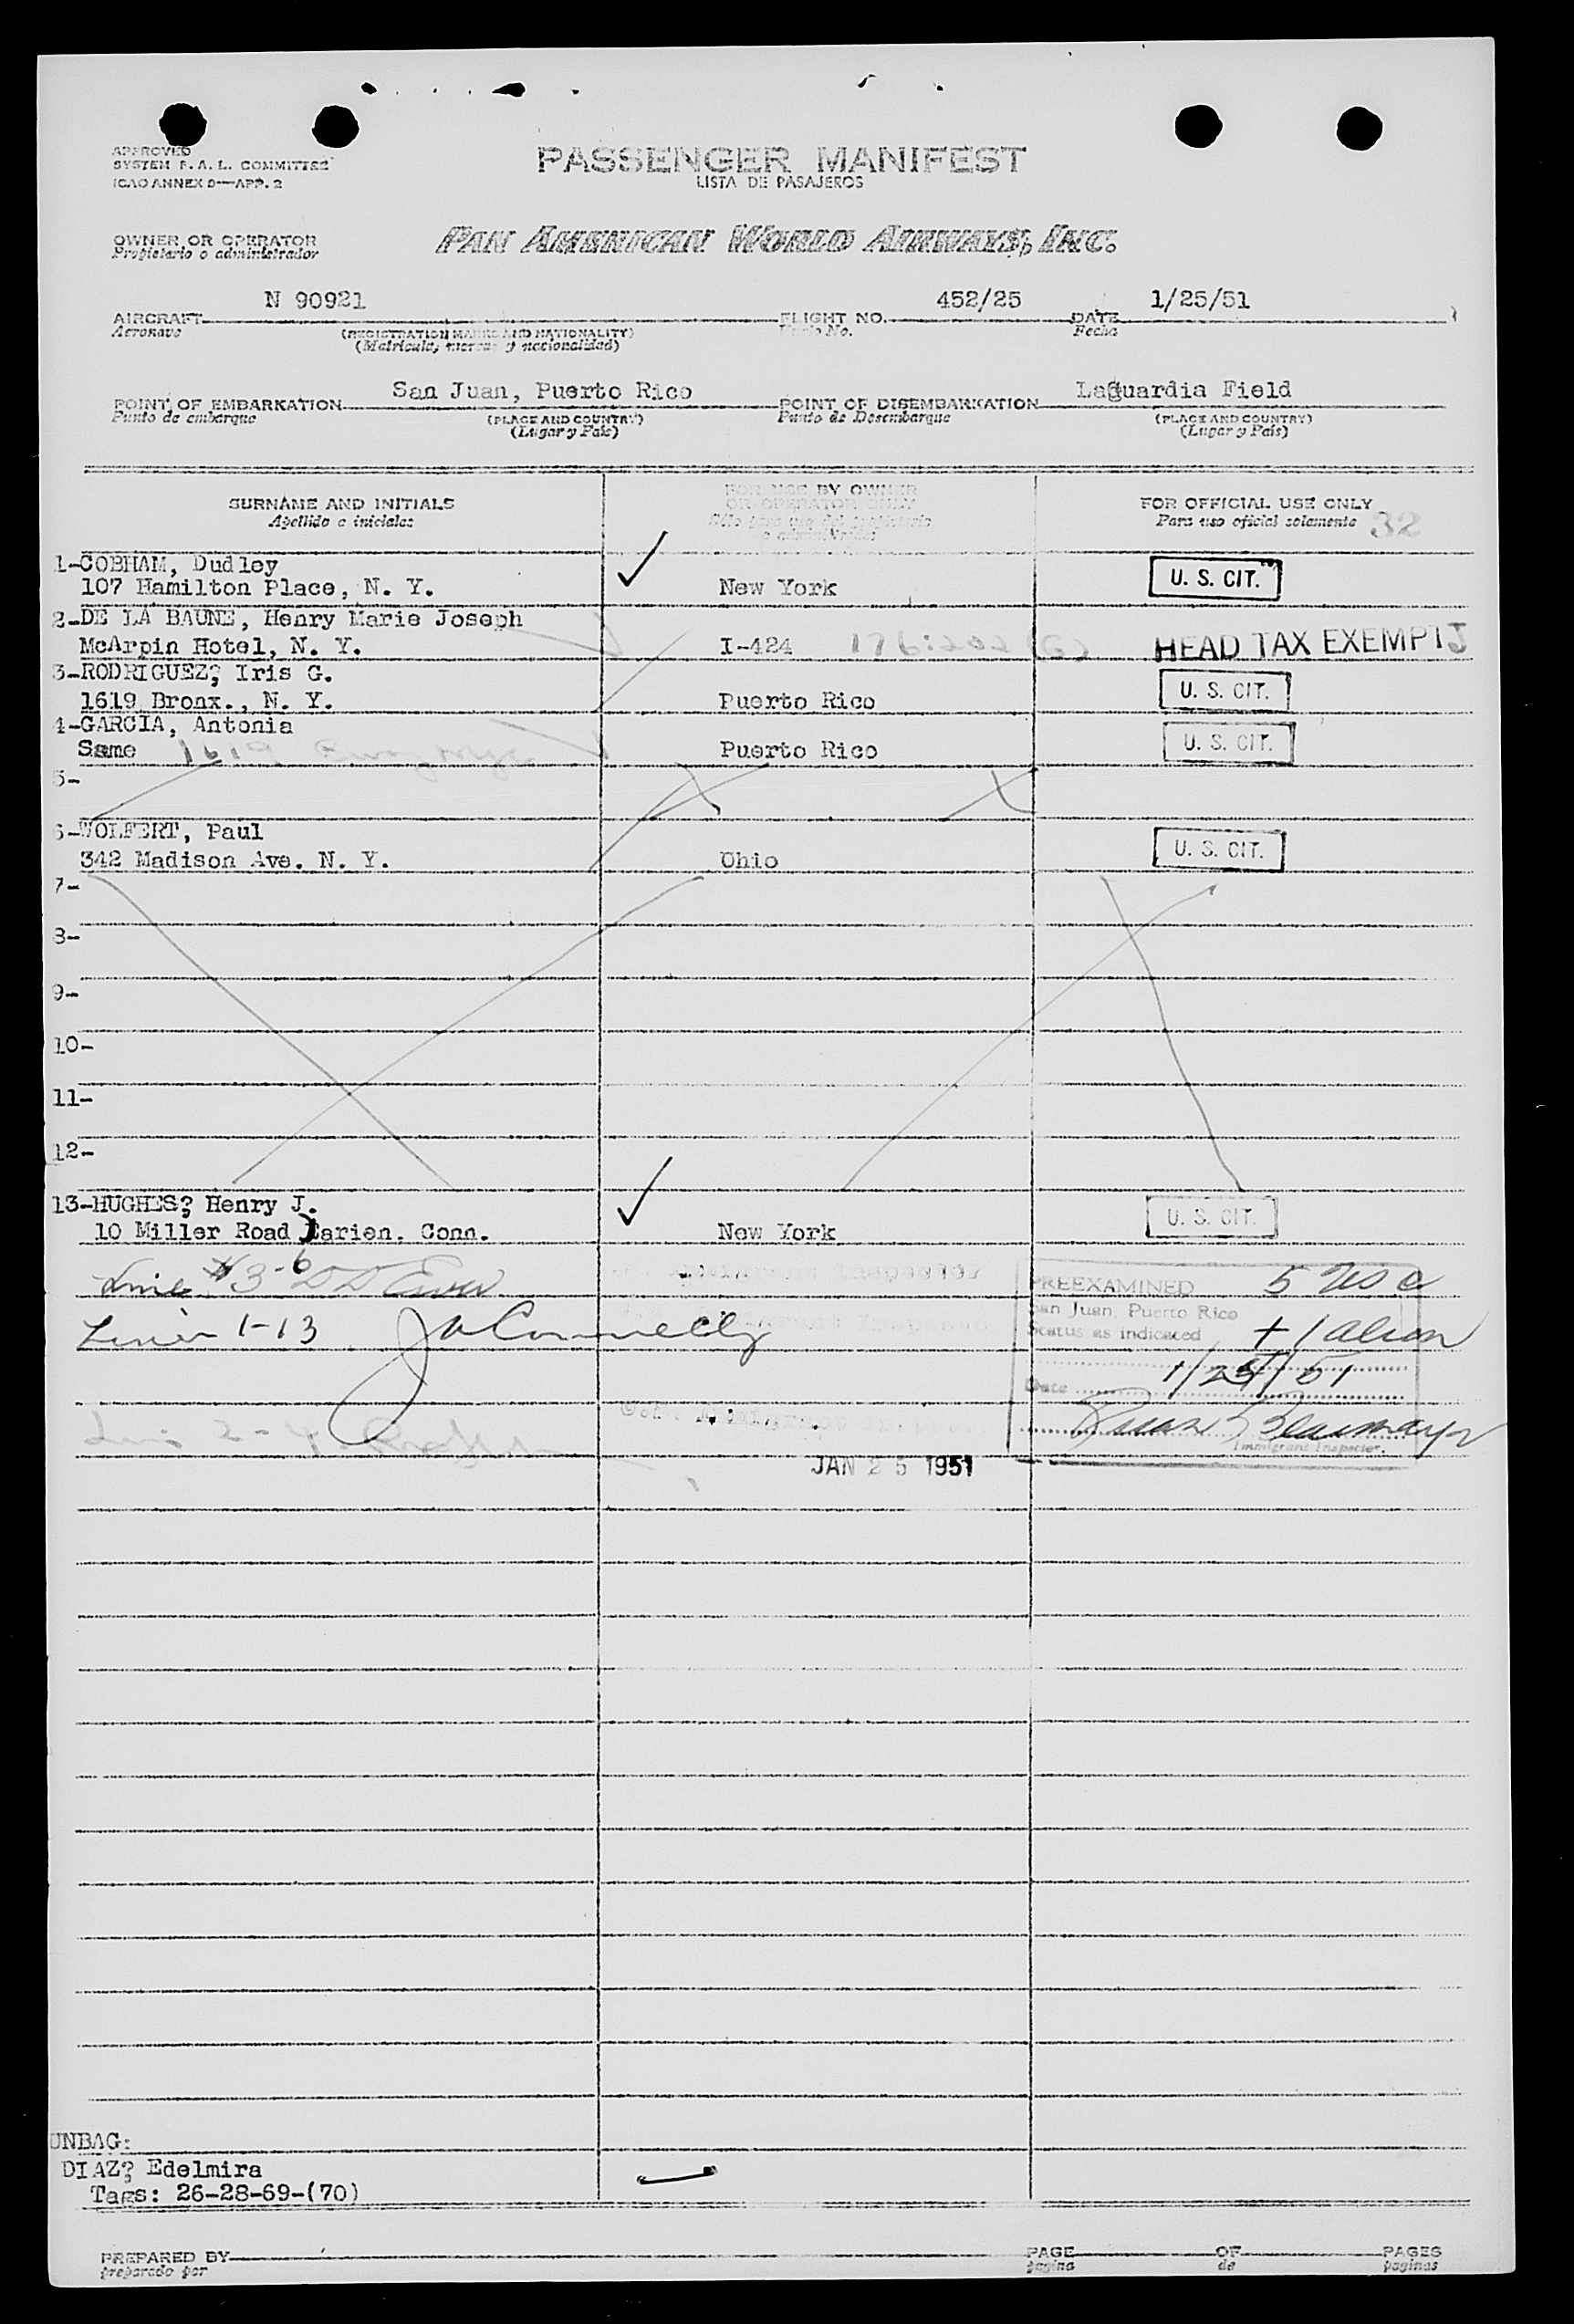 APPROVED
SYSTEM F. A. L. COMMITTEE
ICAO ANNEX 9—APP. 2
PASSENGER MANIFEST
LISTA DE PASAJEROS
OWNER OR OPERATOR
Propietario o administrador
PAN AMERICAN WORLD AIRWAYS, INC.
AIRCRAFT N 90921 FLIGHT NO. 452/25 DATE 1/25/51
Aeronave (REGISTRATION MARKS AND NATIONALITY) No. Fecha
(Matricula, marcas y nacionalidad)
POINT OF EMBARKATION San Juan, Puerto Rico POINT OF DISEMBARKATION LaGuardia Field
Punto de embarque (PLACE AND COUNTRY) Punto de Desembarque (PLACE AND COUNTRY)
(Lugar y País) (Lugar y País)
SURNAME AND INITIALS FOR USE BY OWNER OR OPERATOR ONLY FOR OFFICIAL USE ONLY
Apellido e iniciales Para uso oficial solamente 32
1-COBHAM, Dudley
107 Hamilton Place, N. Y. New York U. S. CIT.
2-DE LA BAUNE, Henry Marie Joseph
McArpin Hotel, N. Y. I-424 HEAD TAX EXEMPT
3-RODRIGUEZ? Iris G.
1619 Bronx., N. Y. Puerto Rico U. S. CIT.
4-GARCIA, Antonia
Same 1619 Puerto Rico U. S. CIT.
5-
6-WOLFERT, Paul
342 Madison Ave. N. Y. Ohio U. S. CIT.
7-
8-
9-
10-
11-
12-
13-HUGHES? Henry J.
10 Miller Road Darien. Conn. New York U. S. CIT.
Line #3-6
PREEXAMINED 5 USC
San Juan, Puerto Rico
Line 1-13 Status as indicated + 1 alien
Date 1/25/51
Immigrant Inspector.
JAN 25 1951
UNBAG:
DIAZ? Edelmira
Tags: 26-28-69-(70)
PREPARED BY PAGE OF PAGES
preparado por pagina de paginas